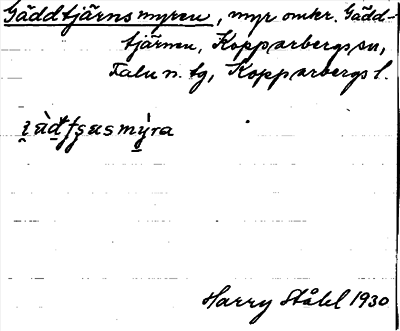 Gäddtjärnsmyren, myr omkr. Gädd-
tjärnen, Kopparbergs sn,
Falu n. tg, Kopparbergs l.
Harry Ståhl 1930